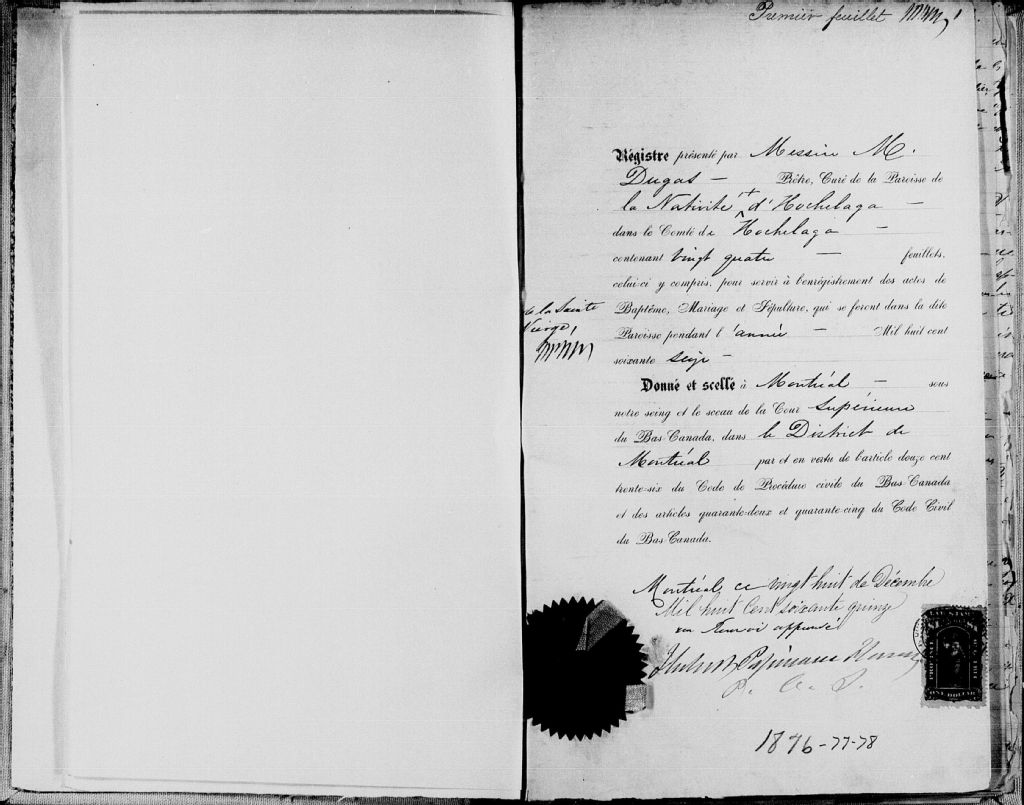 Premier feuillet
Régistre présenté par Messire M.
Dugas — Prêtre, Curé de la Paroisse de
la Nativité + d'Hochelaga —
dans le Comté de Hochelaga —
contenant vingt quatre — feuillets,
celui-ci y compris, pour servir à l'enrégistrement des actes de
Baptême, Mariage et Sépulture, qui se feront dans la dite
Paroisse pendant l'année — Mil huit cent
soixante seize —
de la Sainte
Vierge,
Donné et scellé à Montréal — sous
notre seing et le sceau de la Cour Supérieure
du Bas-Canada, dans le District de
Montréal par et en vertu de l'article douze cent
trente-six du Code de Procédure civile du Bas-Canada
et des articles quarante-deux et quarante-cinq du Code Civil
du Bas-Canada.
Montréal, ce vingt huit de Décembre
Mil huit Cent soixante quinze
un Renvoi approuvé
Hubert, Papineau Honey
P. C. S.
PROVINCE
ONE DOLLAR
1876-77-78